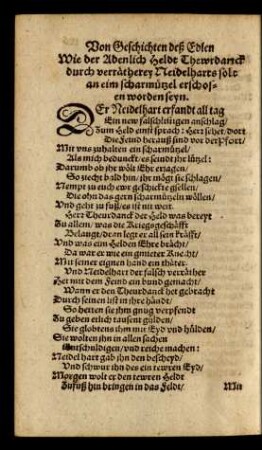 Von Geschichten deß Edlen
Wie der Adenlich Heldt Thewrdanck
durch verrätherey Neidelharts solt
an ein scharmützel erschos-
en worden seyn.
Er Neidelhart erfandt all tag
Ein new falschlistigen anschlag/
Zum Held einst sprach: Herr sehet/dort
Die Feind herauß sind vor der Pfort/
Mit vns zuhalten ein scharmützel/
Als mich bedunckt/es seindt jhr lützel:
Darumb ob jhr wölt Ehr eriagen/
So ziecht bald hin/jhr mögt sie schlagen/
Nempt zu euch ewr geschickte gsellen/
Die ohn das gern scharmützeln wöllen/
Vnd geht zu fuß/es ist nit weit.
Herr Theurdanck der Held was bereyt
Zu allem/was die Kriegsgeschäfft
Belangt/dran legt er all sein kräfft/
Vnd was ein Helden Ehre brächt/
Da war er wie ein gmieter Knecht/
Mit seiner eignen hand ein thäter.
Vnd Neidelhart der falsch verräther
Het mit dem Feind ein bund gemacht/
Wann er den Theurdanck het gebracht
Durch seinen list in ihre händt/
So hetten sie jhm gnug verpfendt
Zu geben etlich tausent gülden/
Sie globtens jhm mit Eyd vnd hülden/
Sie wolten jhn in allen sachen
Entschuldigen/vnd reiche machen:
Neidelhart gab jhn den bescheyd/
Vnd schwur jhn des ein tewren Eyd/
Morgen wolt er den tewren Heldt
Zufuß hin bringen in das Feldt/
Mit